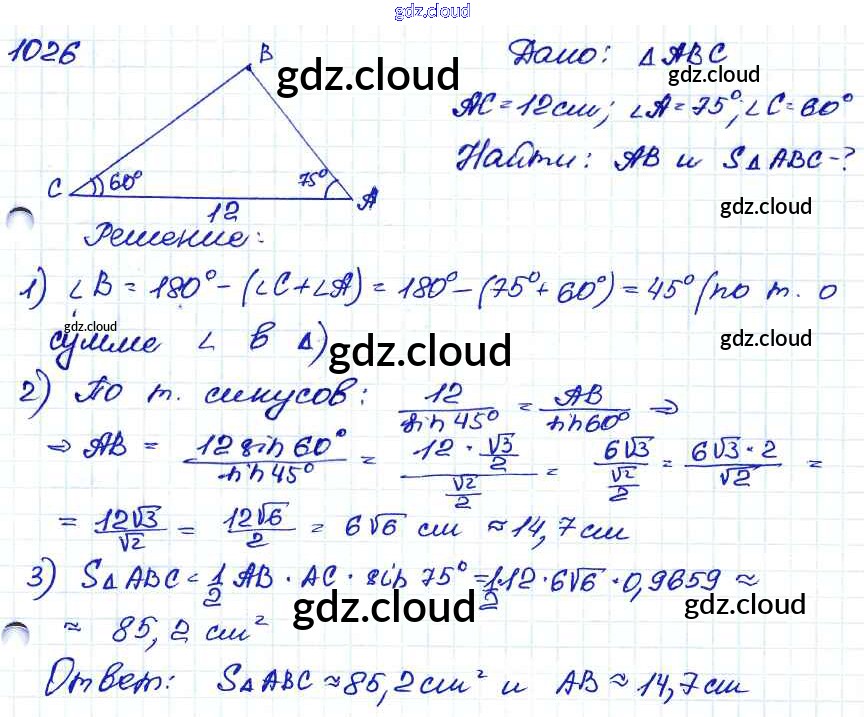 gdz.cloud
1026
B
gdz.cloud
Дано: △ABC
gdz.cloud
AC = 12 см; ∠A = 75°; ∠C = 60°
Найти: AB и S△ABC - ?
C 60° 75° A
12
gdz.cloud
Решение:
1) ∠B = 180° - (∠C + ∠A) = 180° - (75° + 60°) = 45° (по т. о
gdz.cloud
сумме ∠ в △)
gdz.cloud
gdz.cloud
2) По т. синусов: 12/sin 45° = AB/sin 60° ⇒
⇒ AB = 12 sin 60°/sin 45° = (12 · √3/2)/(√2/2) = 6√3/(√2/2) = 6√3 · 2/√2 =
= 12√3/√2 = 12√6/2 = 6√6 см ≈ 14,7 см
3) S△ABC = 1/2 AB · AC · sin 75° = 1/2 · 12 · 6√6 · 0,9659 ≈
gdz.cloud
gdz.cloud
≈ 85,2 см²
Ответ: S△ABC ≈ 85,2 см² и AB ≈ 14,7 см